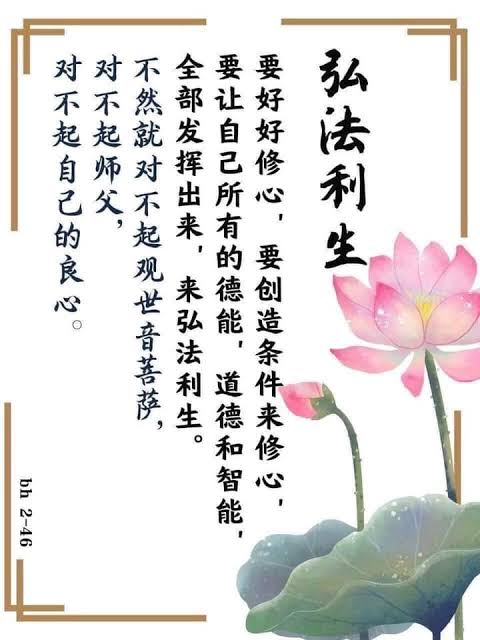 弘法利生
要好好修心，要创造条件来修心，
要让自己所有的德能，道德和智能，
全部发挥出来，来弘法利生。
不然就对不起观世音菩萨，
对不起师父，
对不起自己的良心。
bh 2-46